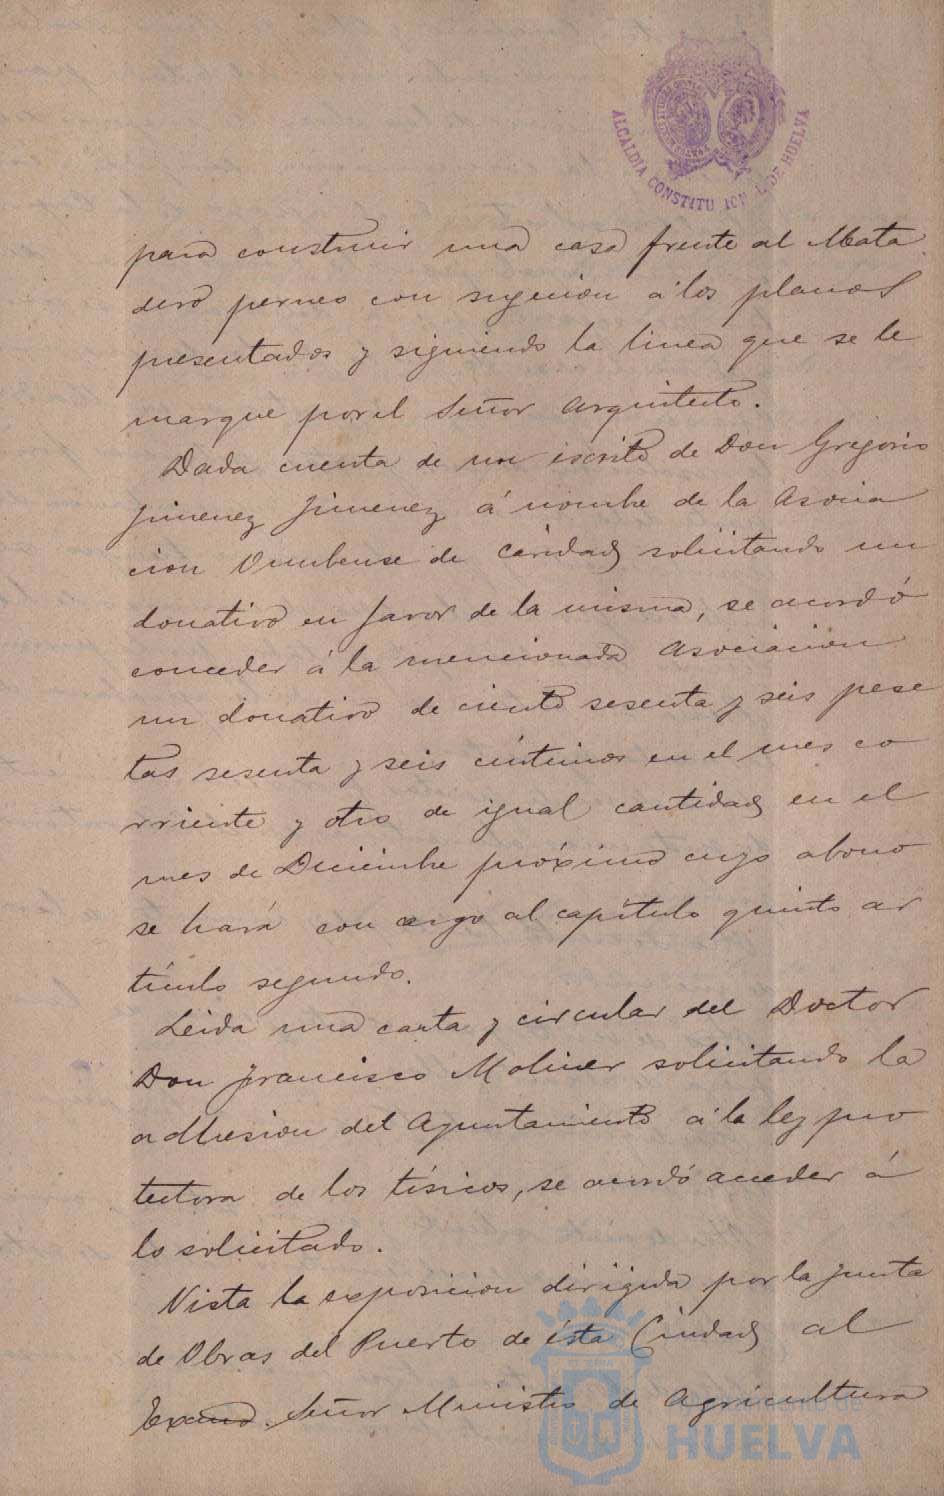 ALCALDIA CONSTITUCIONAL DE HUELVA
para construir una casa frente al Mata
dero perneo con sugecion á los planos
presentados y siguiendo la linea que se le
marque por el Señor Arquitecto.
Dada cuenta de un escrito de Don Gregorio
Jimenez Jimenez á nombre de la Asocia
cion Onubense de Caridad solicitando un
donativo en favor de la misma, se acordó
conceder á la mencionada Asociacion
un donativo de ciento sesenta y seis pese
tas sesenta y seis céntimos en el mes co
rriente y otro de igual cantidad en el
mes de Diciembre próximo cuyo abono
se hará con cargo al capítulo quinto ar
tículo segundo.
Leida una carta y circular del Doctor
Don Francisco Moliner solicitando la
adhesion del Ayuntamiento á la ley pro
tectora de los tísicos, se acordó acceder á
lo solicitado.
Vista la exposicion dirigida por la Junta
de Obras del Puerto de ésta Ciudad al
Excmo. Señor Ministro de Agricultura
HUELVA